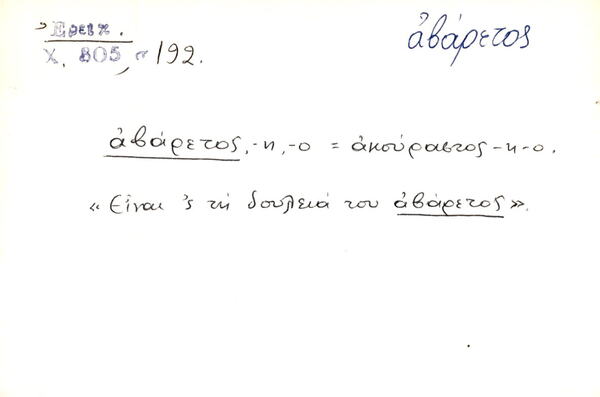 Ἔρεικ.
ἀβάρετος
Χ. 805, σ 192.
ἀβάρετος, -η, -ο = ἀκούραστος -η -ο.
« Εἶναι 'ς τὴ δουλειά του ἀβάρετος ».